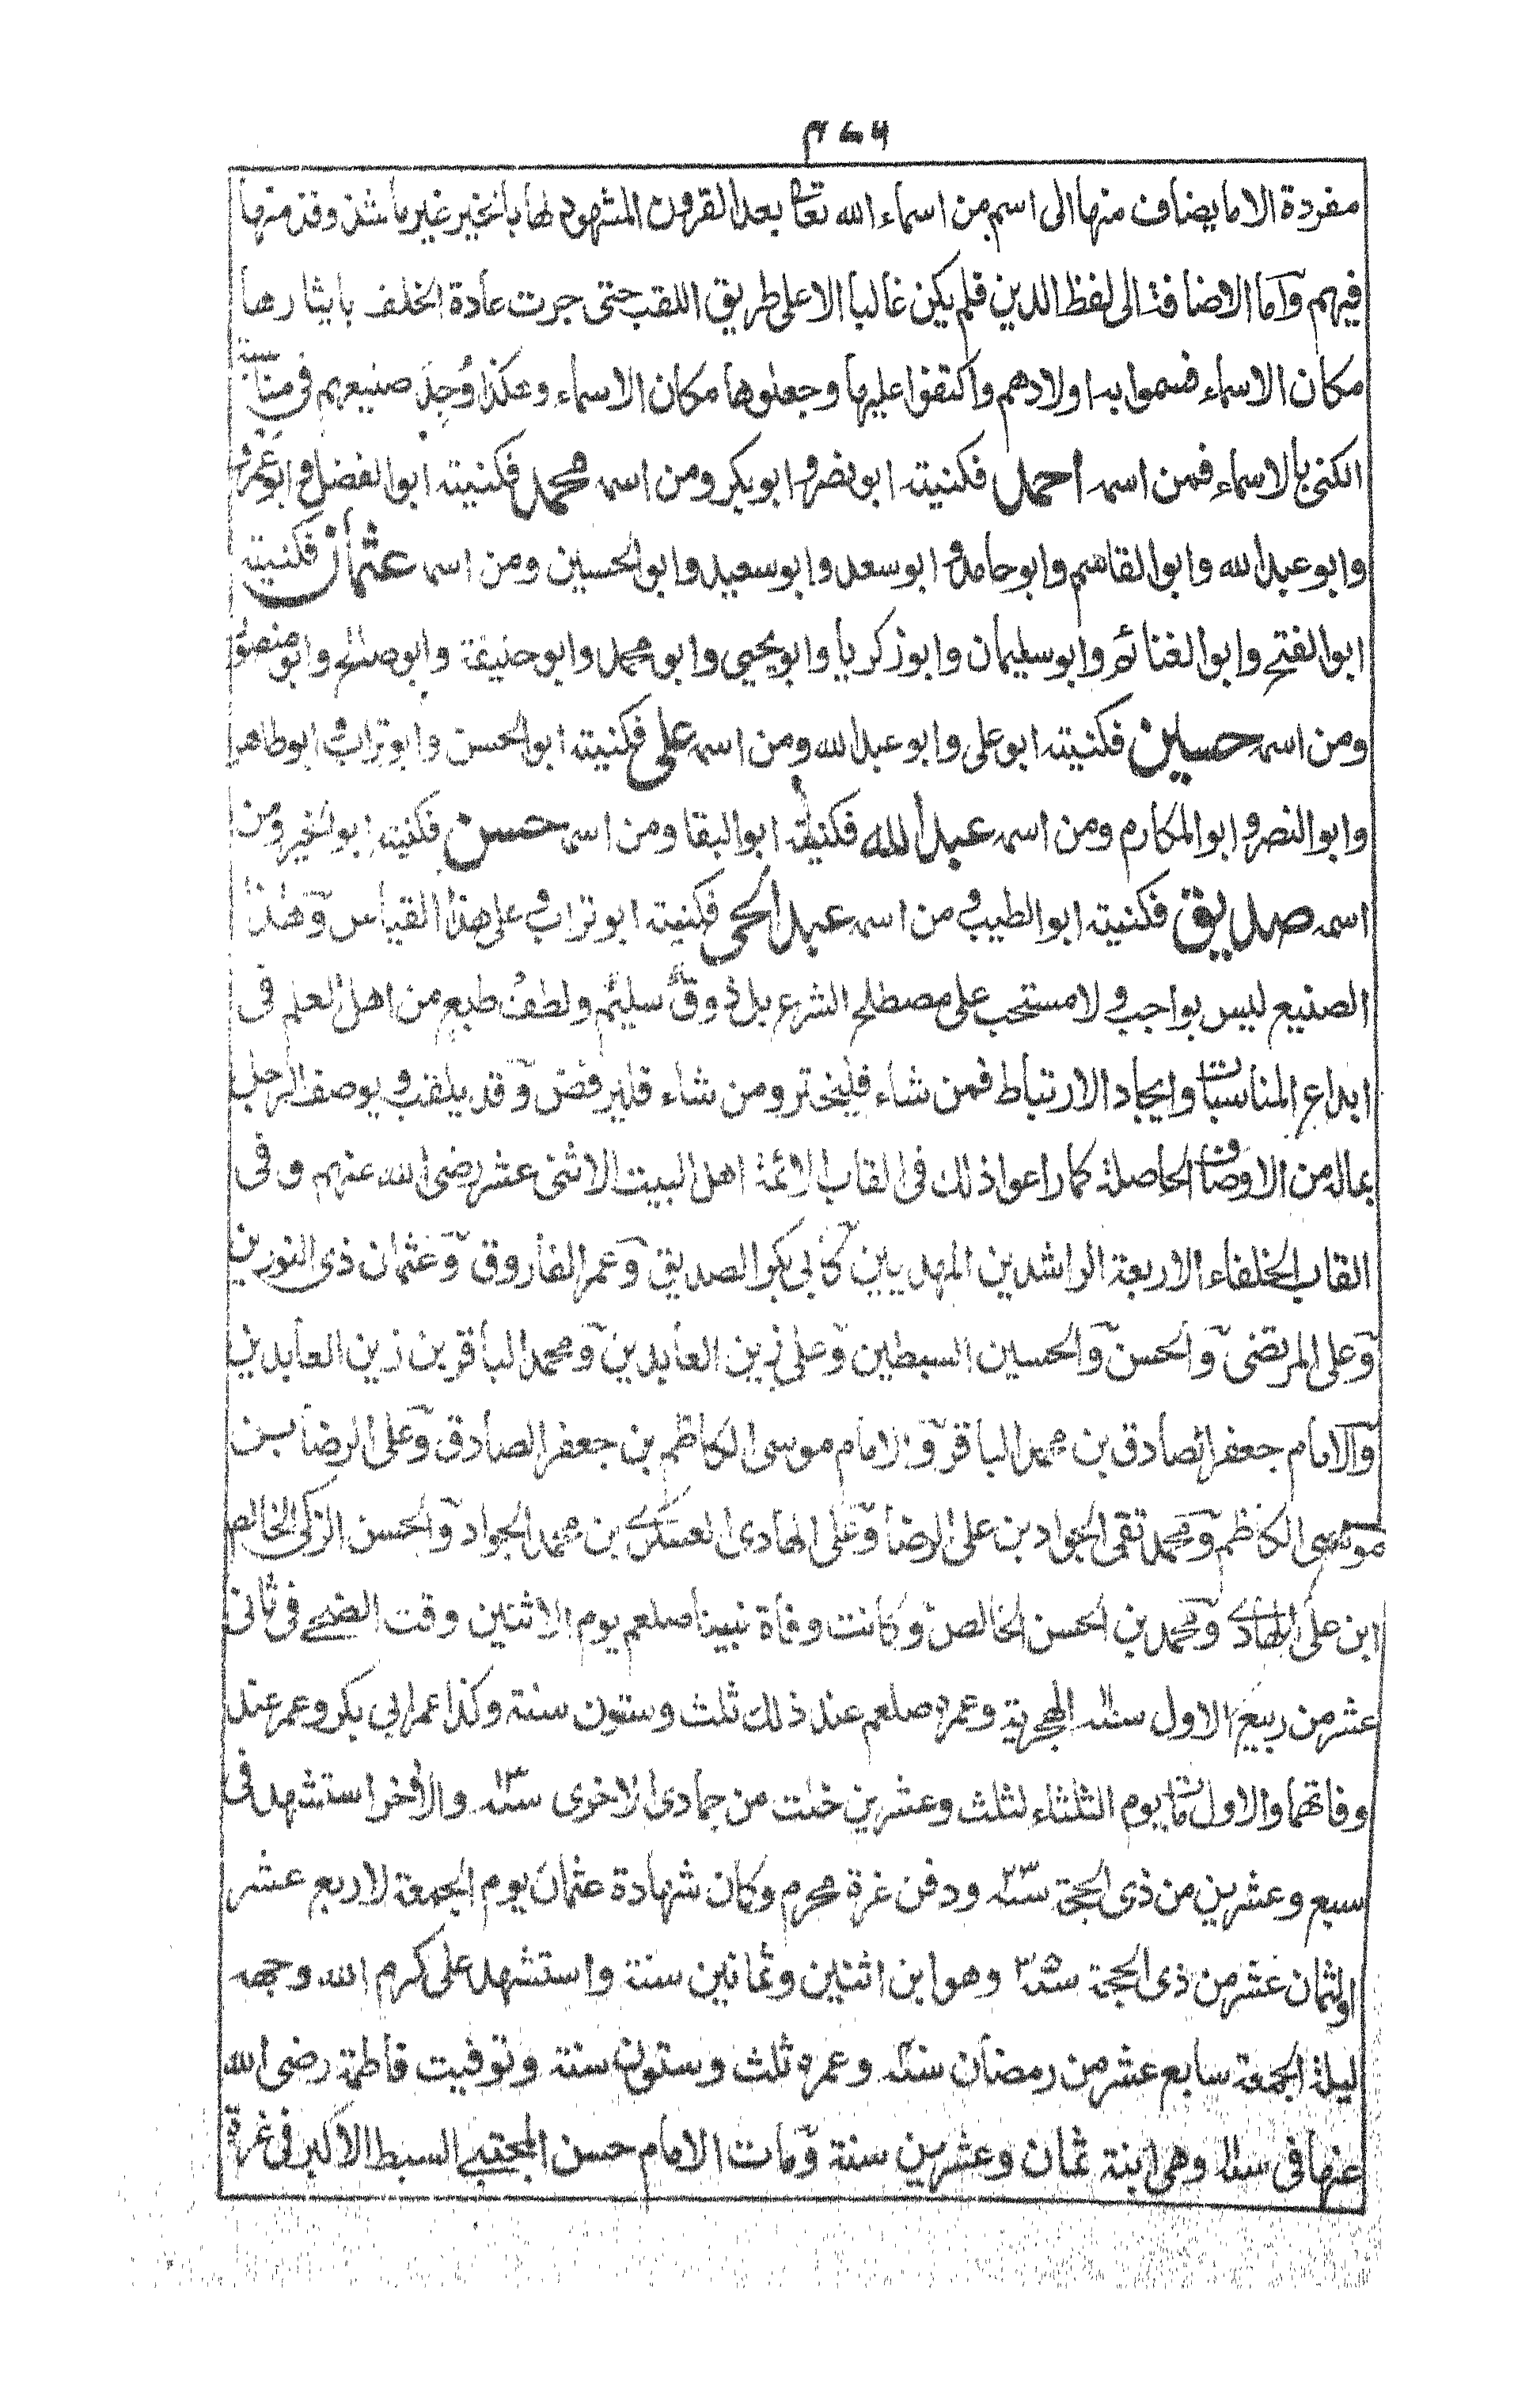 ۴۷۶
مفردة الا ما يضاف منها الى اسم من اسماء الله تعا بعد القرون المشهود لها بالخير غير ما شذ وقذ منها
فيهم وآما الاضافة الى لفظ الدين فلم يكن غالبا الا على طريق اللقب حتى جرت عادة الخلف بايثارها
مكان الاسماء فسموا به اولادهم واكتفوا عليها وجعلوها مكان الاسماء وهكذا وُجِدَ صنيعهم في مناسبة
الكنى بالاسماء فمن اسمه احمد فكنيته ابو نصر و ابو بكر ومن اسمه محمد فكنيته ابو الفضل و ابو عمرو
وابو عبد الله وابو القاسم وابو حامد و ابو سعد وابو سعيد وابو الحسين ومن اسمه عثمان فكنيته
ابو الفتح وابو الغنائم وابو سليمان وابو زكريا وابو يحيى وابو محمد وابو حنيفة وابو صالح وابو منصور
ومن اسمه حسين فكنيته ابو على وابو عبد الله ومن اسمه على فكنيته ابو الحسن وابو تراب و ابو طاهر
وابو النصر و ابو المكارم ومن اسمه عبد الله فكنيته ابو البقا ومن اسمه حسن فكنيته ابو الخير ومن
اسمه صديق فكنيته ابو الطيب و من اسمه عبد الحى فكنيته ابو تراب و على هذا القياس وهذا
الصنيع ليس بواجب و لا مستحب على مصطلح الشرع بل ذوقٌ سليمٌ ولطفُ طبعٍ من اهل العلم فى
ابداع المناسبات وايجاد الارتباط فمن شاء فليختر ومن شاء فليرفض وقد يلقب و يوصف الرجل
بماله من الاوصاف الحاصلة كما راعوا ذلك فى القاب الائمة اهل البيت الاثنى عشر رضى الله عنهم و فى
القاب الخلفاء الاربعة الراشدين المهديين كآبى بكر الصديق وعمر الفاروق وعثمان ذى النورين
وعلى المرتضى والحسن والحسين السبطين وعلى زين العابدين ومحمد الباقر بن زين العابدين
والامام جعفر الصادق بن محمد الباقر والامام موسى الكاظم بن جعفر الصادق وعلى الرضا بن
موسى الكاظم ومحمد تقى الجواد بن على الرضا وعلى الهادى العسكرى بن محمد الجواد والحسن الزكى الخالص
ابن على الهادى ومحمد بن الحسن الخالص وكانت وفاة نبينا صلعم يوم الاثنين وقت الضحى فى ثانى
عشر من ربيع الاول سنة ١١ الهجرية وعمره صلعم عند ذلك ثلث وستون سنة وكذا عمر ابي بكر وعمر عند
وفاتهما والاول مات يوم الثلثاء لثلث وعشرين خلت من جمادى الاخرى سنة ١٣ والاخر استشهد فى
سبع وعشرين من ذى الحجة سنة ٢٣ ودفن غرة محرم وكان شهادة عثمان يوم الجمعة لاربع عشر
او لثمان عشر من ذى الحجة سنة ٣٥ وهو ابن اثنين وثمانين سنة واستشهد على كرم الله وجهه
ليلة الجمعة سابع عشر من رمضان سنة ٤٠ وعمره ثلث وستون سنة وتوفيت فاطمة رضى الله
عنها فى سنة ١١ وهى ابنة ثمان وعشرين سنة ومات الامام حسن المجتبى السبط الاكبر فى غرة